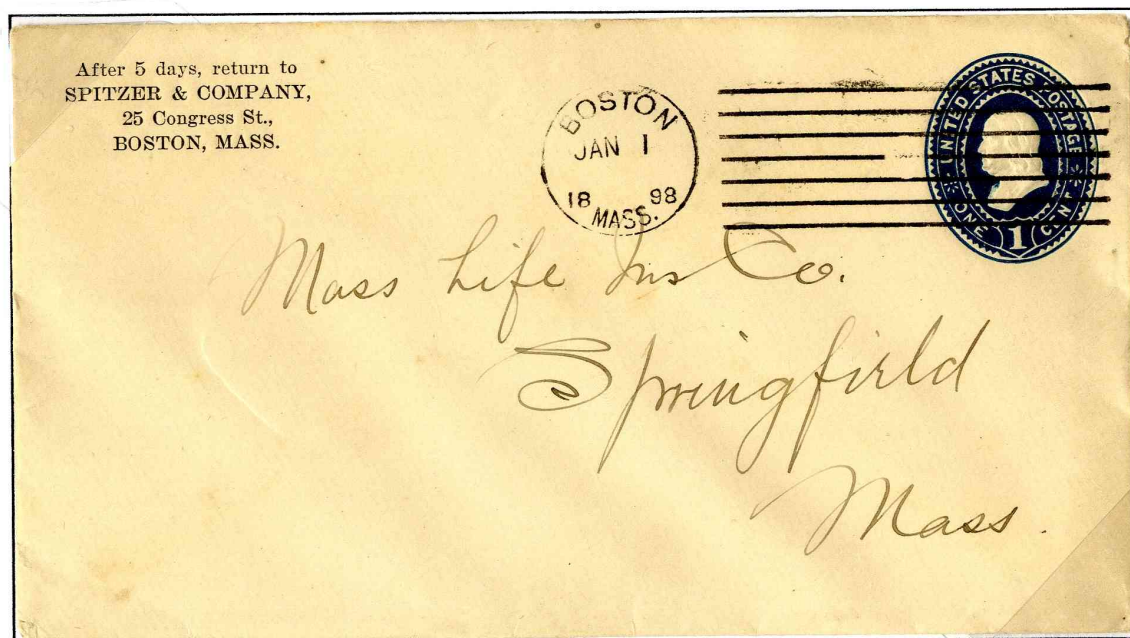 After 5 days, return to
SPITZER & COMPANY,
25 Congress St.,
BOSTON, MASS.
BOSTON
JAN 1
18 98
MASS.
UNITED STATES POSTAGE
ONE 1 CENT
Mass Life Ins Co.
Springfield
Mass.